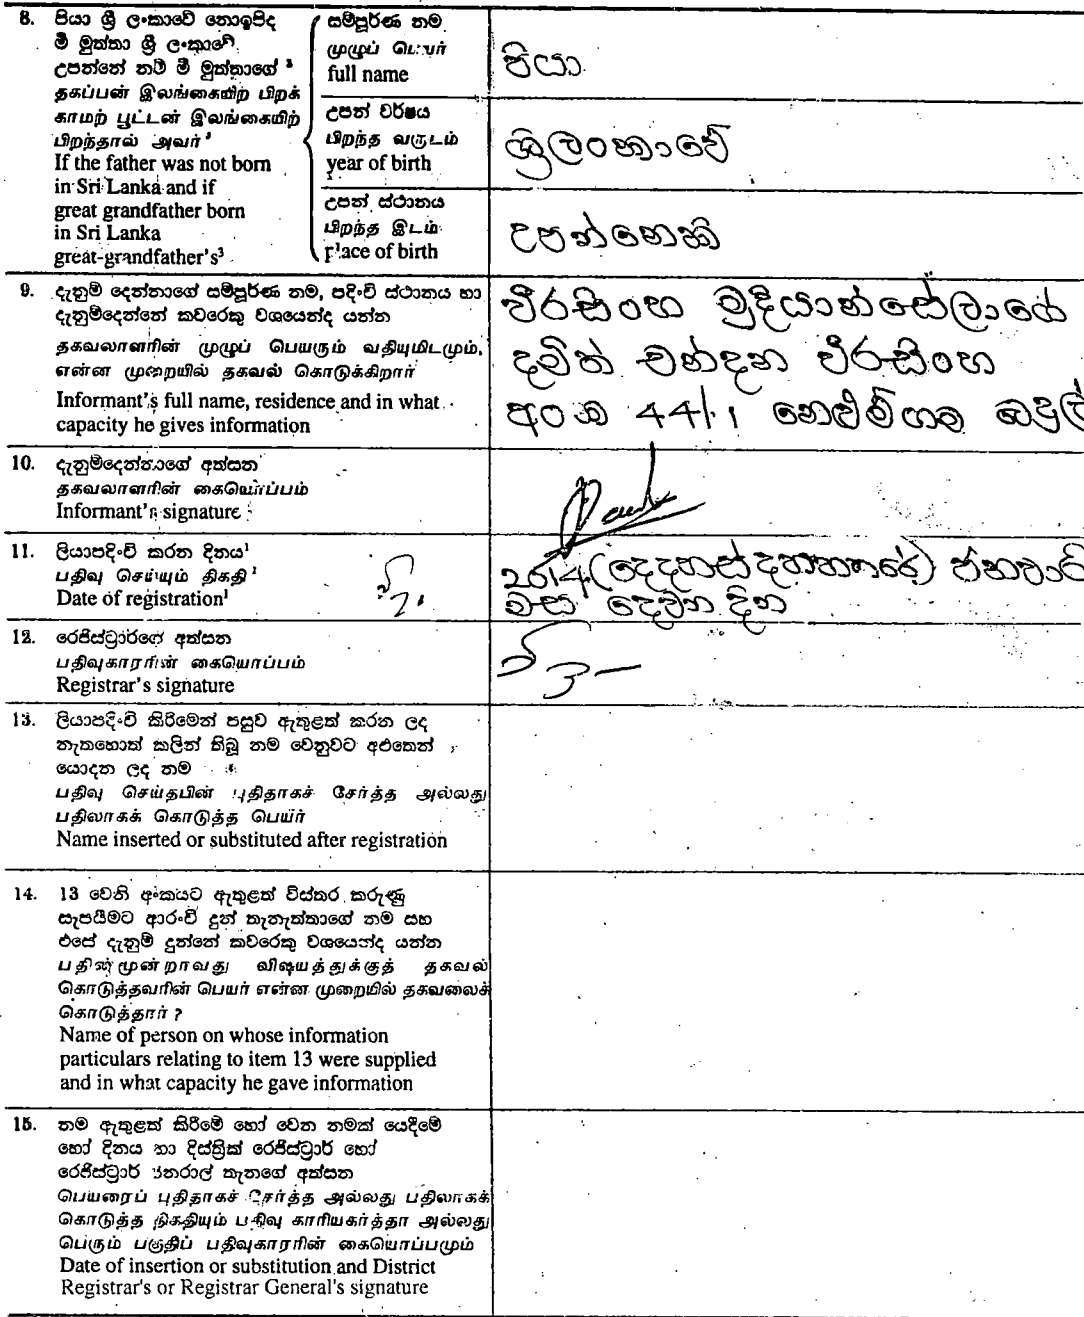 8. පියා ශ්‍රී ලංකාවේ නොඉපිද
මී මුත්තා ශ්‍රී ලංකාවේ
උපන්නේ නම් මී මුත්තාගේ ³
தகப்பன் இலங்கையிற் பிறக்
காமற் பூட்டன் இலங்கையிற்
பிறந்தால் அவர் ³
If the father was not born
in Sri Lanka and if
great grandfather born
in Sri Lanka
great-grandfather's³
සම්පූර්ණ නම
முழுப் பெயர்
full name
පියා
උපන් වර්ෂය
பிறந்த வருடம்
year of birth
ශ්‍රී ලංකාවේ
උපන් ස්ථානය
பிறந்த இடம்
place of birth
උපන්නෙකි
9. දැනුම් දෙන්නාගේ සම්පූර්ණ නම, පදිංචි ස්ථානය හා
දැනුම්දෙන්නේ කවරෙකු වශයෙන්ද යන්න
தகவலாளரின் முழுப் பெயரும் வதியுமிடமும்,
என்ன முறையில் தகவல் கொடுக்கிறார்
Informant's full name, residence and in what
capacity he gives information
වීරසිංහ මුදියාන්සේලාගේ
දමිත් චන්දන වීරසිංහ
අංක 44/1 නෙළුම්ගම බදුල්
10. දැනුම්දෙන්නාගේ අත්සන
தகவலாளரின் கையொப்பம்
Informant's signature
11. ලියාපදිංචි කරන දිනය¹
பதிவு செய்யும் திகதி ¹
Date of registration¹
2014 (දෙදහස් දහහතරේ) ජනවාරි
මස දෙවන දින
12. රෙජිස්ට්‍රාර්ගේ අත්සන
பதிவுகாரரின் கையொப்பம்
Registrar's signature
13. ලියාපදිංචි කිරීමෙන් පසුව ඇතුළත් කරන ලද
නැතහොත් කලින් තිබූ නම වෙනුවට අළුතෙන්
යොදන ලද නම
பதிவு செய்தபின் புதிதாகச் சேர்த்த அல்லது
பதிலாகக் கொடுத்த பெயர்
Name inserted or substituted after registration
14. 13 වෙනි අංකයට ඇතුළත් විස්තර කරුණු
සැපයීමට ආරංචි දුන් තැනැත්තාගේ නම සහ
එසේ දැනුම් දුන්නේ කවරෙකු වශයෙන්ද යන්න
பதின் மூன்றாவது விஷயத்துக்குத் தகவல்
கொடுத்தவரின் பெயர் என்ன முறையில் தகவலைக்
கொடுத்தார் ?
Name of person on whose information
particulars relating to item 13 were supplied
and in what capacity he gave information
15. නම ඇතුළත් කිරීමේ හෝ වෙන නමක් යෙදීමේ
හෝ දිනය හා දිස්ත්‍රික් රෙජිස්ට්‍රාර් හෝ
රෙජිස්ට්‍රාර් ජනරාල් තැනගේ අත්සන
பெயரைப் புதிதாகச் சேர்த்த அல்லது பதிலாகக்
கொடுத்த திகதியும் பதிவு காரியகர்த்தா அல்லது
பெரும் பகுதிப் பதிவுகாரரின் கையொப்பமும்
Date of insertion or substitution and District
Registrar's or Registrar General's signature